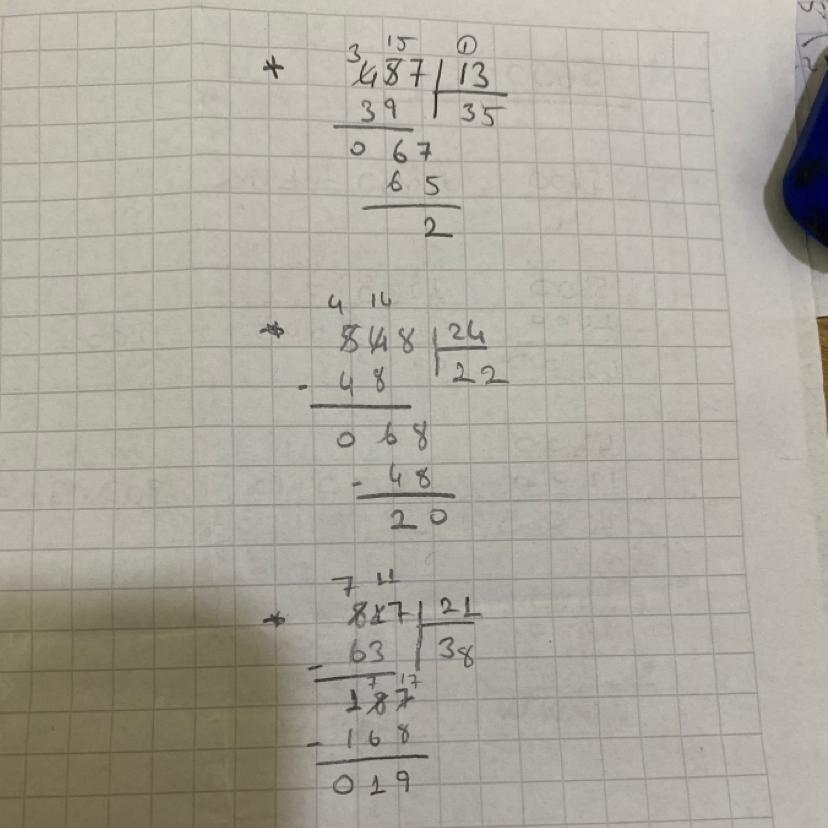 3 15 ①
* 457 | 13
39 35
0 67
65
2
4 14
* 548 | 24
- 48 22
0 68
- 48
20
7 11
* 817 | 21
- 63 38
7 17
187
- 168
019